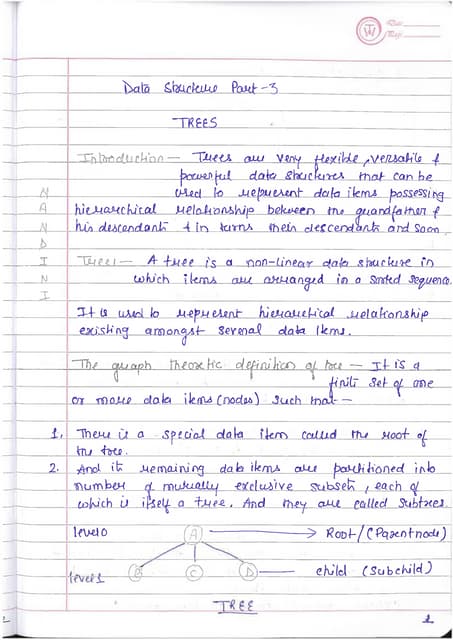 Date
Page
Data Structure Part -3
TREES
Introduction — Trees are very flexible, versatile &
powerful data structures that can be
used to represent data items possessing
hierarchical relationship between the grandfather &
his descendants & in turns their descendants and soon.
N
A
N
D
I
N
I
Tree:- A tree is a non-linear data structure in
which items are arranged in a sorted sequence.
It is used to represent hierarchical relationship
existing amongst several data items.
The graph theoretic definition of tree — It is a
finite set of one
or more data items (nodes) such that —
1. There is a special data item called the root of
the tree.
2. And its remaining data items are partitioned into
number of mutually exclusive subsets, each of
which is itself a tree. And they are called subtrees.
level 0 A Root/(Parentnode)
level 1 B C D child (Subchild)
TREE
1